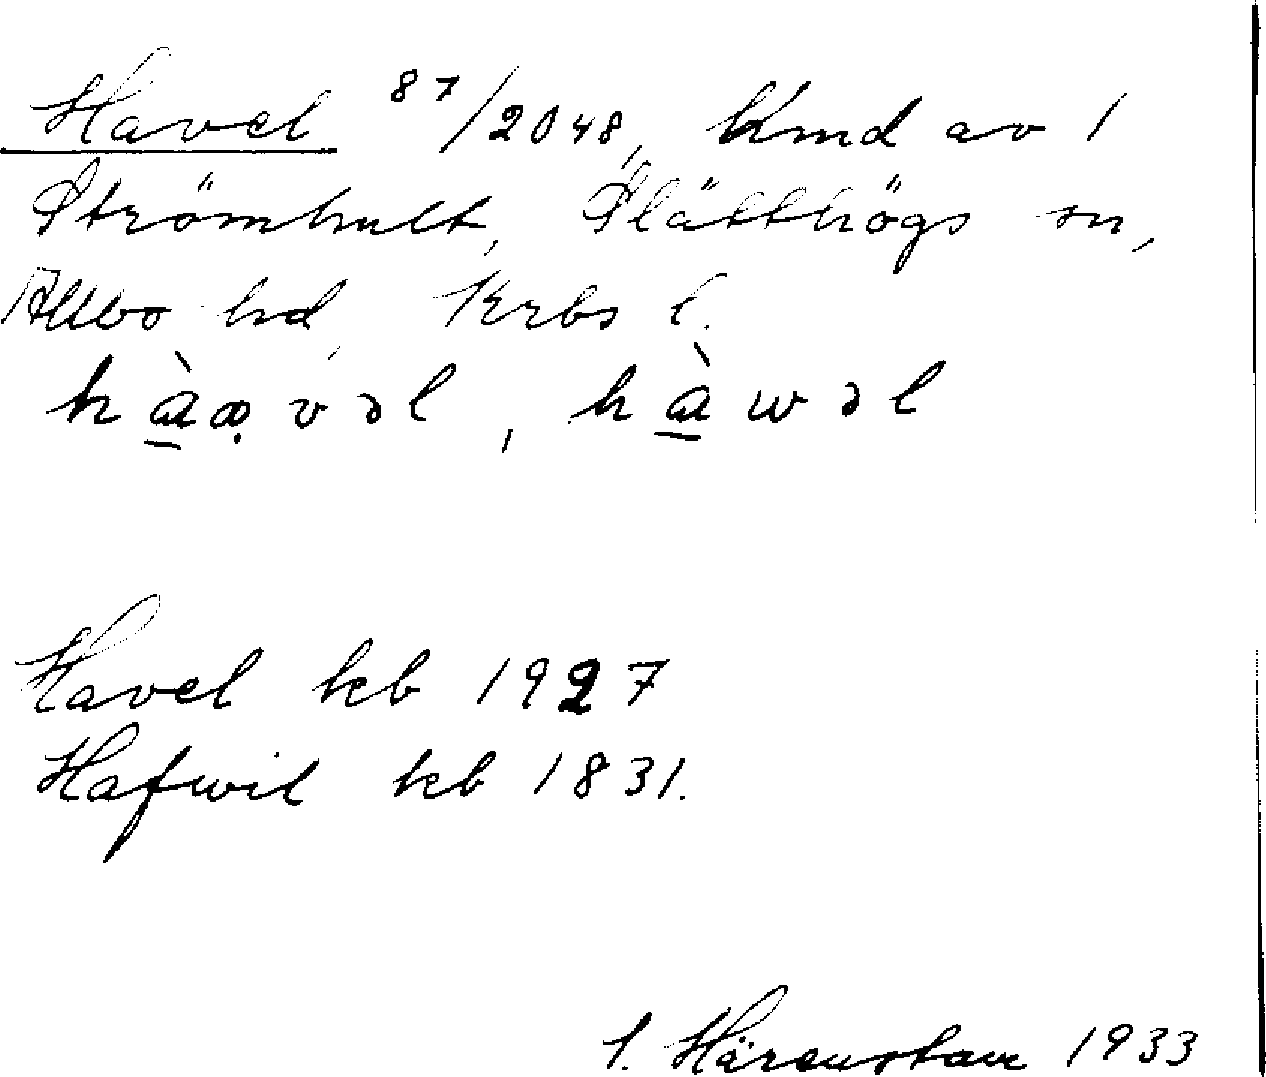 Havel 87/2048, kmd av 1
Strömhult, Slätthögs sn,
Allbo hd, Krbs l.
hàa̤vəl, hàwəl
Havel kb 1927
Hafwil kb 1831.
1933